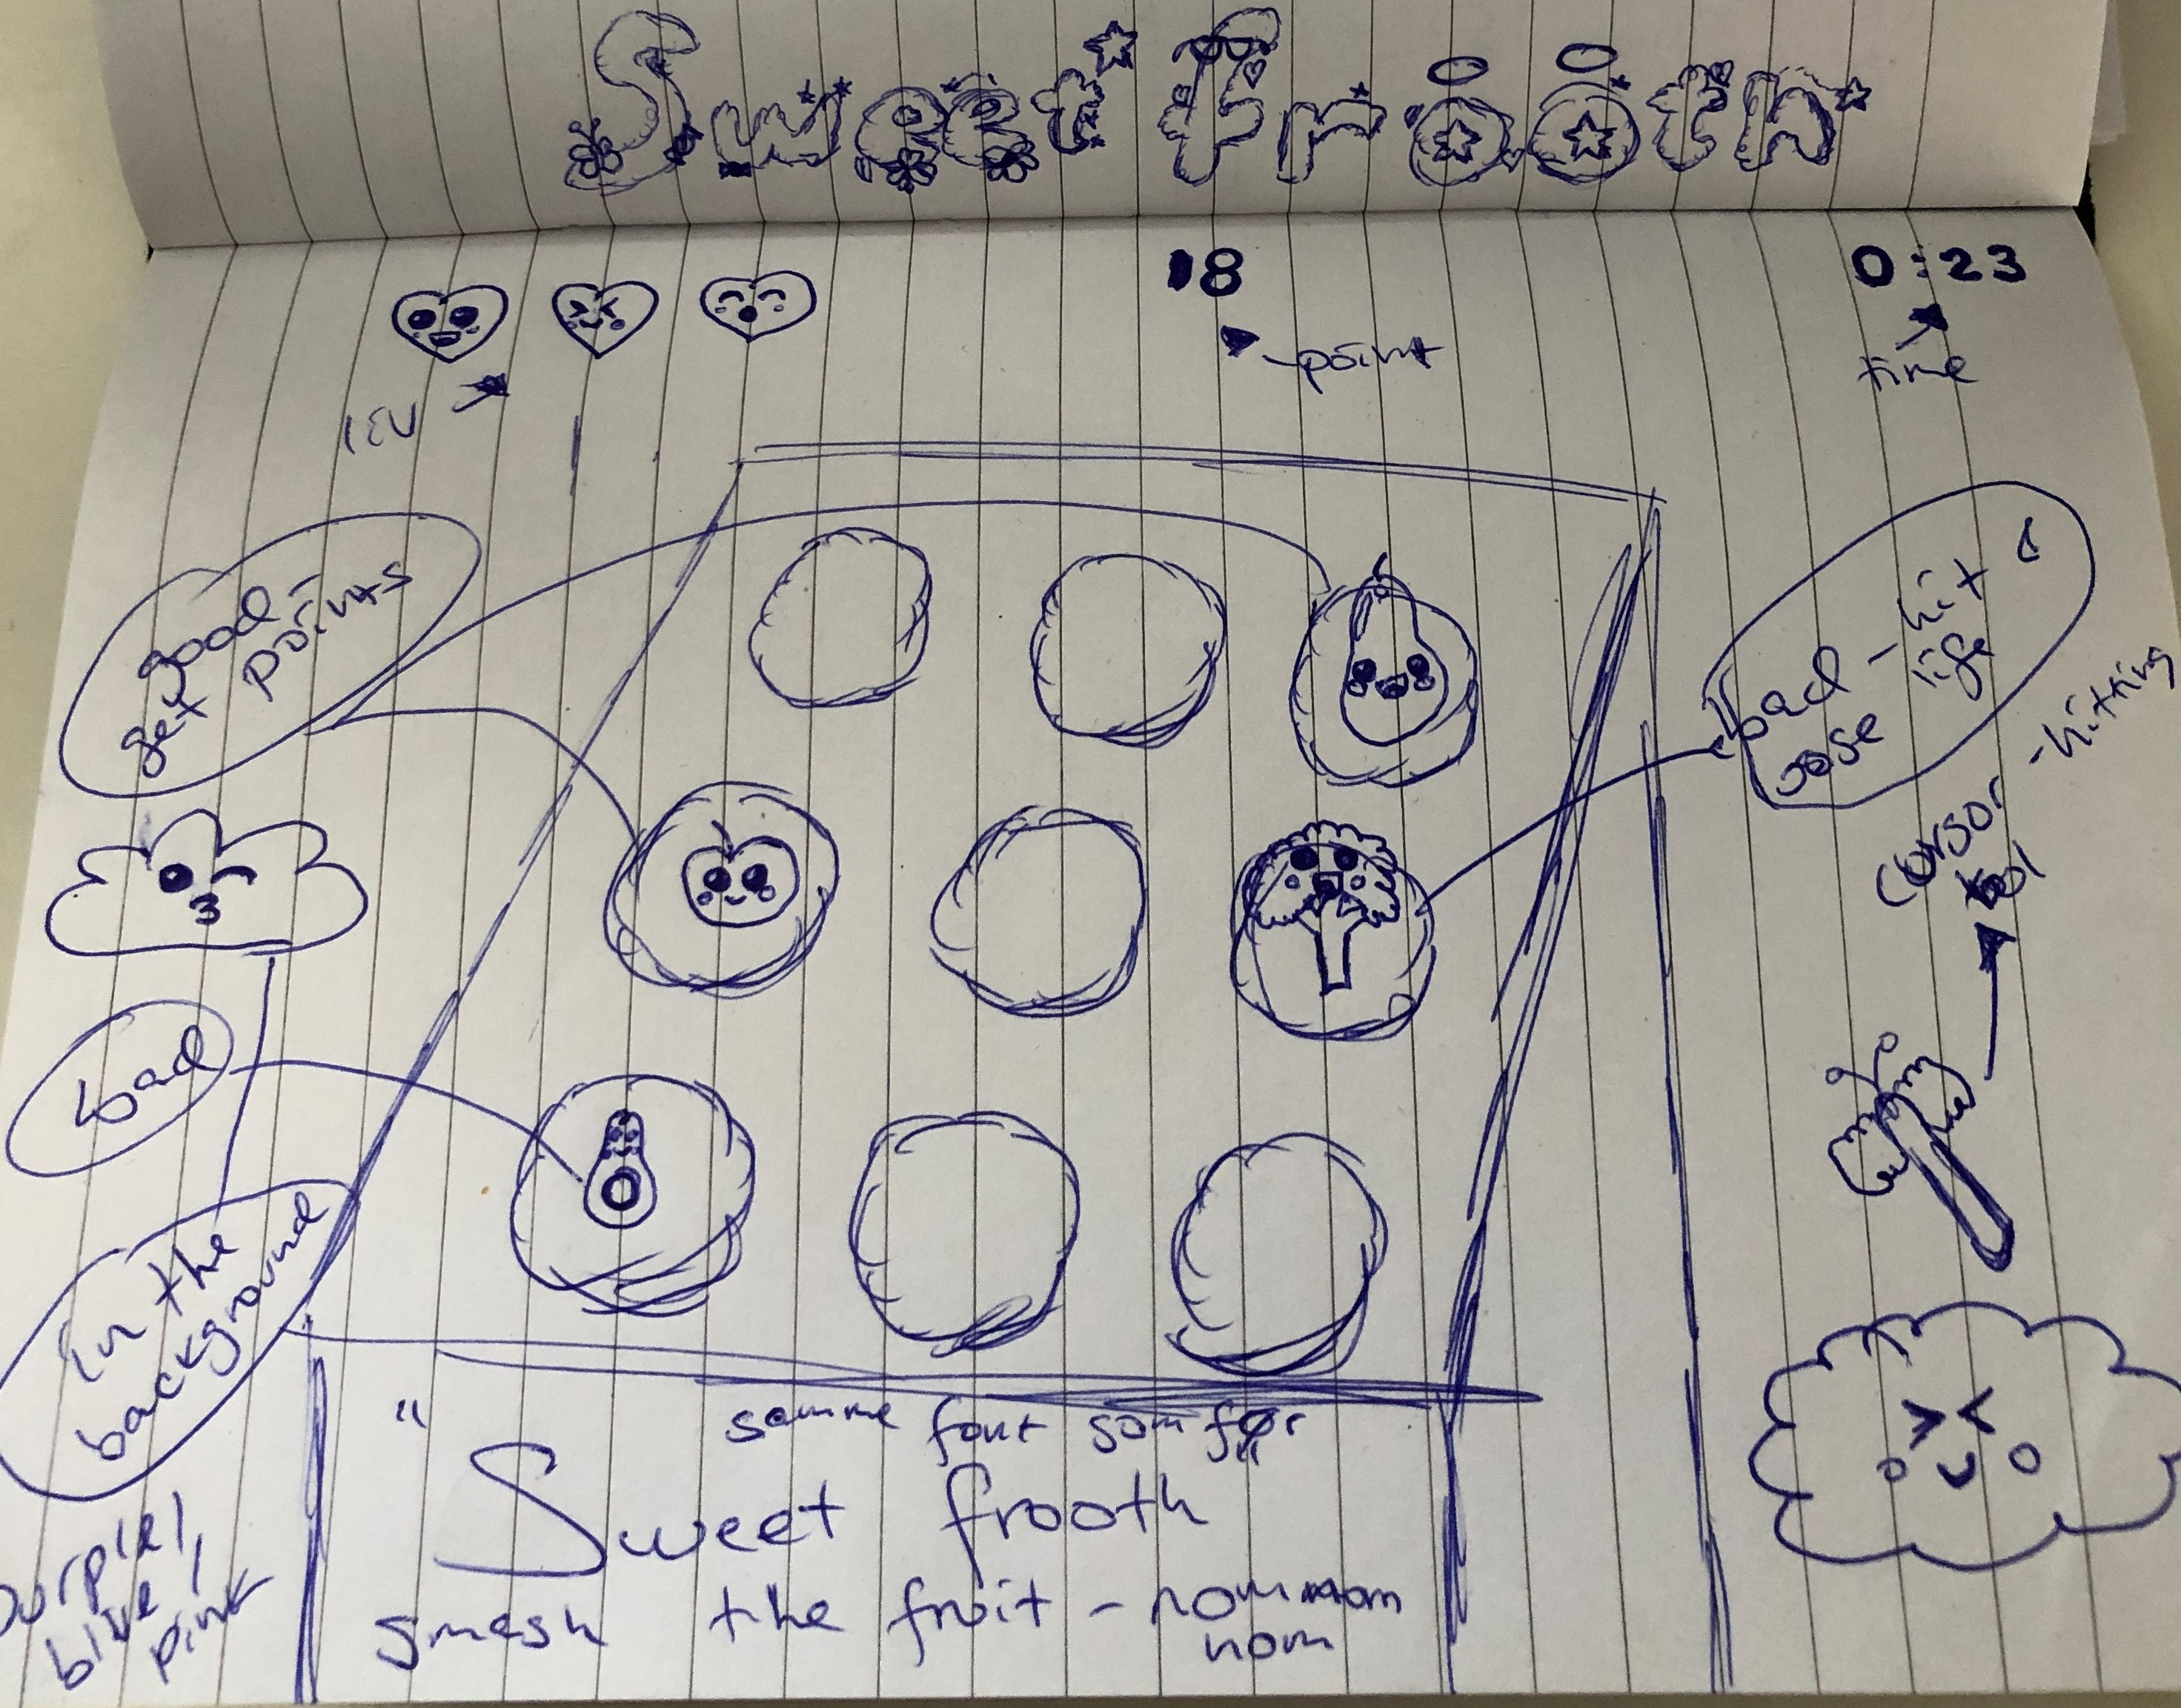 Sweet frooth
18
0:23
point
time
liv
good -
get points
bad - hit
lose life
cursor -hitting
tool
bad
in the
background
purple,
blue,
pink
" samme font som før "
Sweet frooth
smash the fruit - nom nom
nom